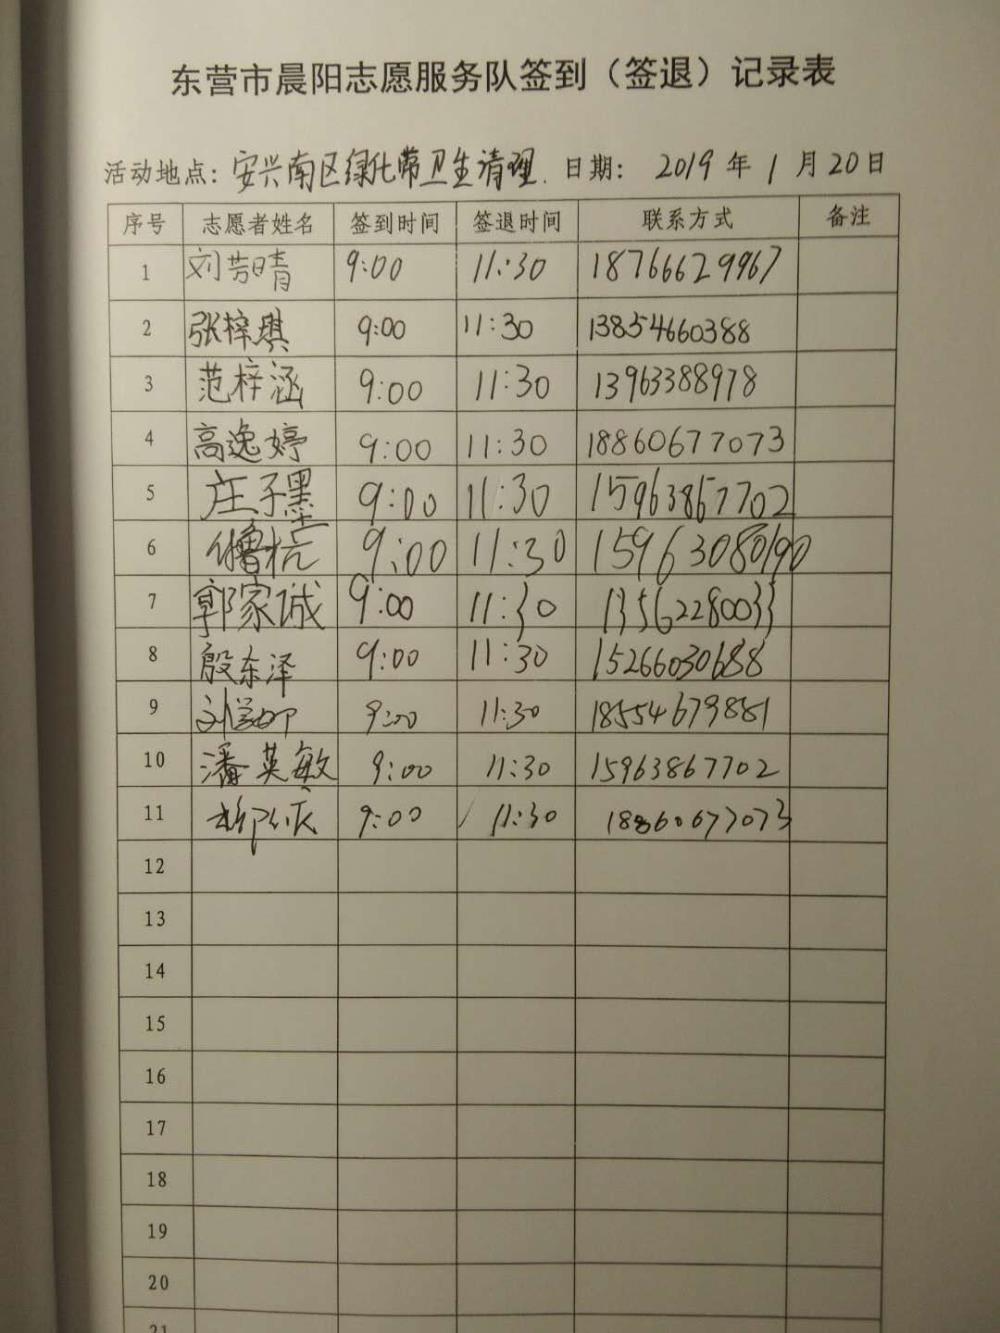 东营市晨阳志愿服务队签到（签退）记录表
活动地点：安兴南区绿化带卫生清理. 日期： 2019 年 1 月 20 日
序号 志愿者姓名 签到时间 签退时间 联系方式 备注
1 刘芳晴 9:00 11:30 18766629967
2 张梓琪 9:00 11:30 13854660388
3 范梓涵 9:00 11:30 13963388978
4 高逸婷 9:00 11:30 18860677073
5 庄子墨 9:00 11:30 15963867702
6 9:00 11:30
7 郭家诚 9:00 11:30 13562280033
8 殷东泽 9:00 11:30 15266030688
9 9:00 11:30 18554679881
10 潘英敏 9:00 11:30 15963867702
11 9:00 11:30 18860677073
12
13
14
15
16
17
18
19
20
21